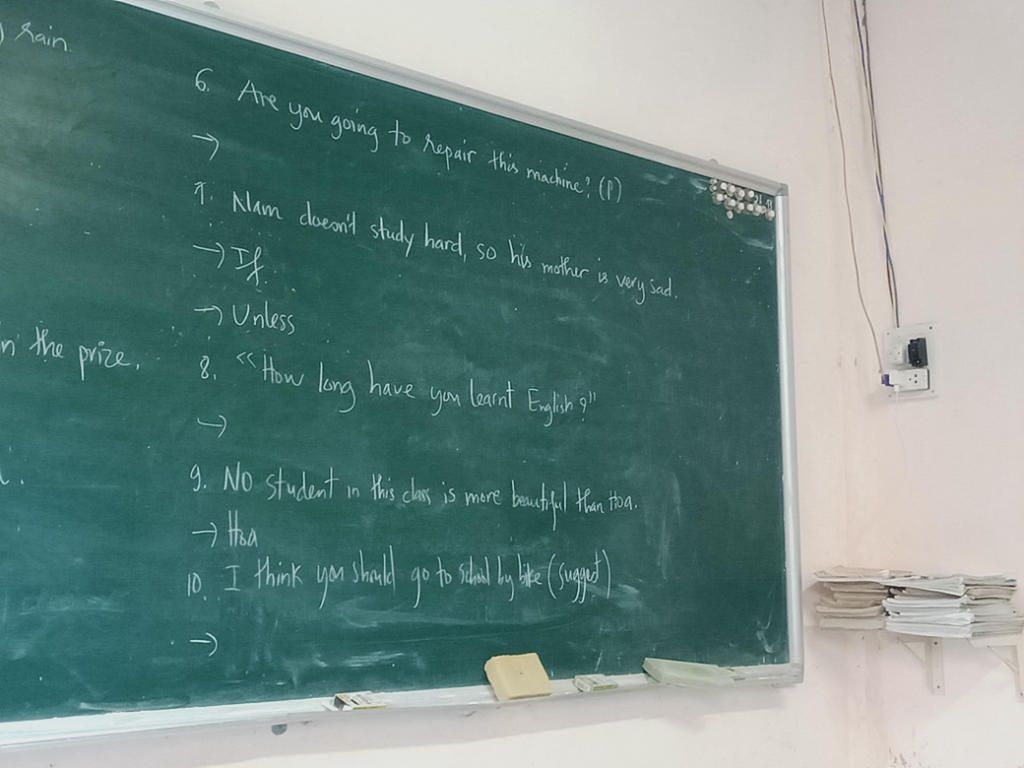 rain.
n the prize.
6. Are you going to repair this machine? (P)
→
7. Nam doesn't study hard, so his mother is very sad.
→ If
→ Unless
8. "How long have you learnt English?"
→
9. No student in this class is more beautiful than Hoa.
→ Hoa
10. I think you should go to school by bike (suggest)
→